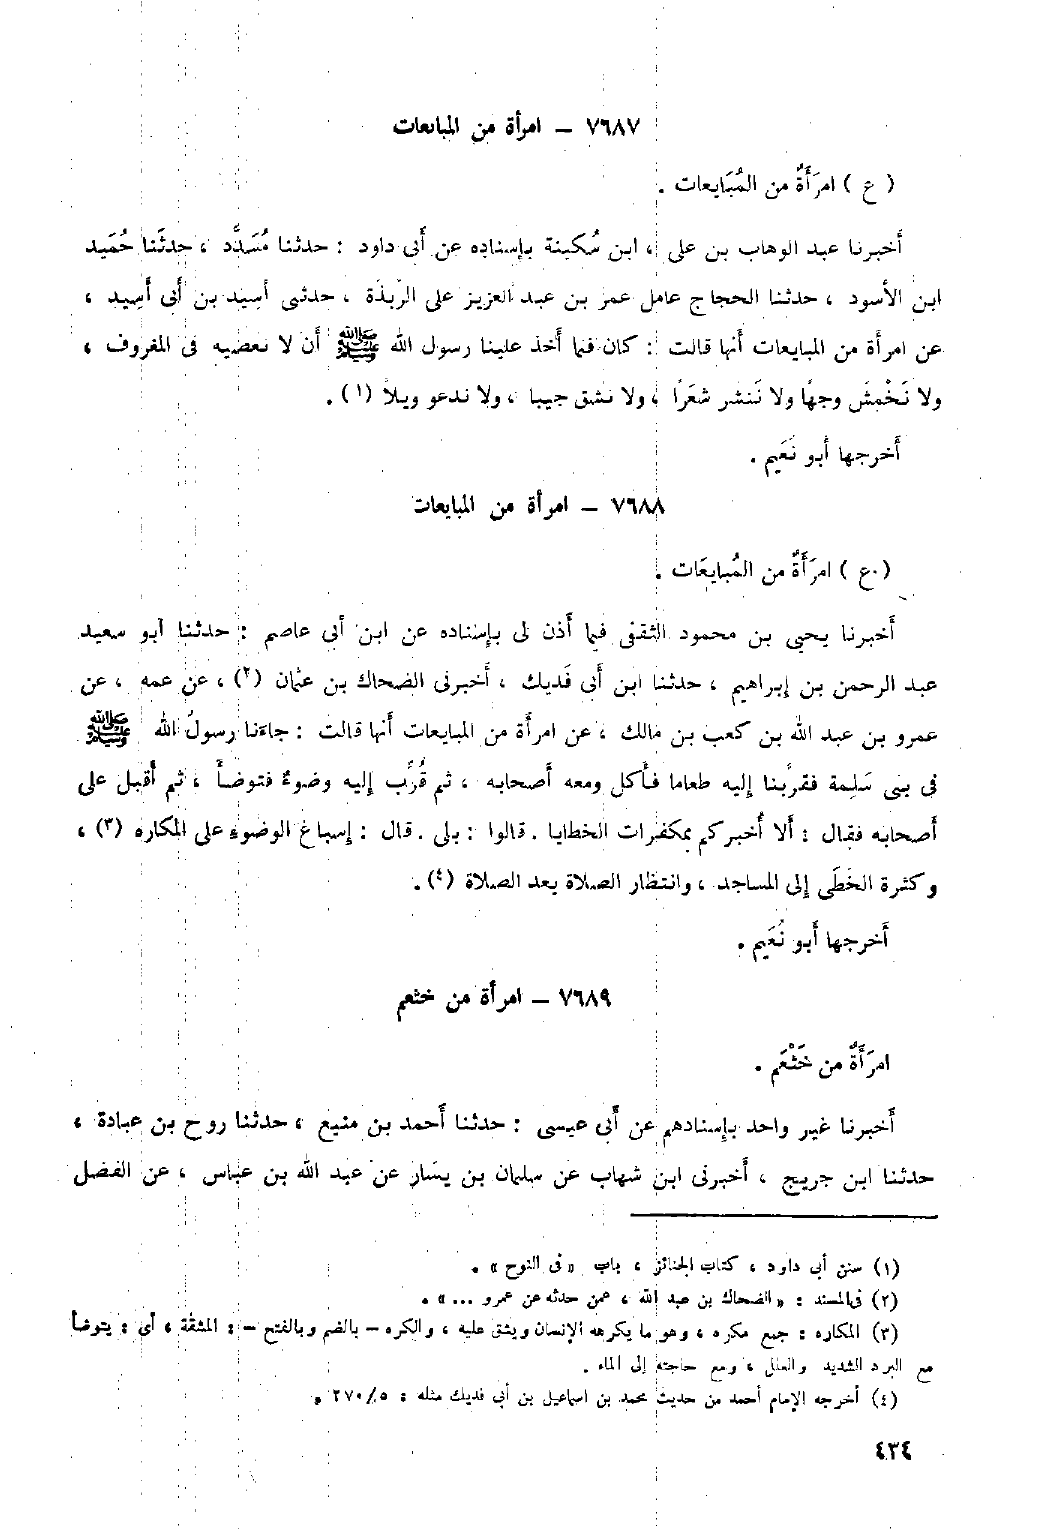 ٧٦٨٧ – امرأة من المبايعات
( ع ) امرَأَةٌ من المُبَايعات .
أخبرنا عبد الوهاب بن على ، ابن سُكينة بإسناده عن أَبى داود : حدثنا مُسَدَّد ، حدثَنا حُمَيد
ابن الأسود ، حدثنا الحجاج عامل عمر بن عبد العزيز على الرّبذة ، حدثنى أسِيد بن أَبى أَسِيد ،
عن امرأة من المبايعات أَنها قالت : كان فيما أَخذ علينا رسول الله ﷺ أَن لا نعصيه فى المعروف ،
ولا نَخْمشَ وجهًا ولا نَنشر شعَرًا ، ولا نشق جيبا ، ولا ندعو ويلاً (١) .
أَخرجها أَبو نُعَيم .
٧٦٨٨ – امرأة من المبايعات
( ع ) امرَأَةٌ من المُبايعَات .
أَخبرنا يحيى بن محمود الثقفى فيما أَذن لى بإسناده عن ابن أَبى عاصم : حدثنا أَبو سعيد
عبد الرحمن بن إبراهيم ، حدثنا ابن أَبى فُديك ، أَخبرنى الضحاك بن عثمان (٢) ، عن عمه ، عن
عمرو بن عبد الله بن كعب بن مالك ، عن امرأة من المبايعات أَنها قالت : جاءَنا رسولُ الله ﷺ
فى بنى سَلِمة فقربَّنا إليه طعاما فأَكل ومعه أَصحابه ، ثم قُرِّب إليه وضوءٌ فتوضأَ ، ثم أَقبل على
أَصحابه فقال : أَلا أُخبركم بمكفرات الخطايا . قالوا : بلى . قال : إسباغ الوضوءِ على المكاره (٣) ،
وكثرة الخطَى إلى المساجد ، وانتظار الصلاة بعد الصلاة (٤) .
أَخرجها أَبو نُعَيم .
٧٦٨٩ – امرأة من خثعم
امرَأَةٌ من خَثْعَم .
أَخبرنا غير واحد بإسنادهم عن أَبى عيسى : حدثنا أَحمد بن منيع ، حدثنا روح بن عبادة ،
حدثنا ابن جريج ، أَخبرنى ابن شهاب عن سليمان بن يسَار عن عبد الله بن عباس ، عن الفضل
(١) سنن أبى داود ، كتاب الجنائز ، باب «فى النوح» .
(٢) فى المسند : «الضحاك بن عبد الله ، عمن حدثه عن عمرو ...» .
(٣) المكاره : جمع مكره ، وهو ما يكرهه الإنسان ويشق عليه ، والكره – بالضم وبالفتح – : المشقة ، أى : يتوضأ
مع البرد الشديد والعلل ، ومع حاجته إلى الماء .
(٤) أخرجه الإمام أحمد من حديث محمد بن اسماعيل بن أبى فديك مثله : ٥/٢٧٠ .
٤٣٤